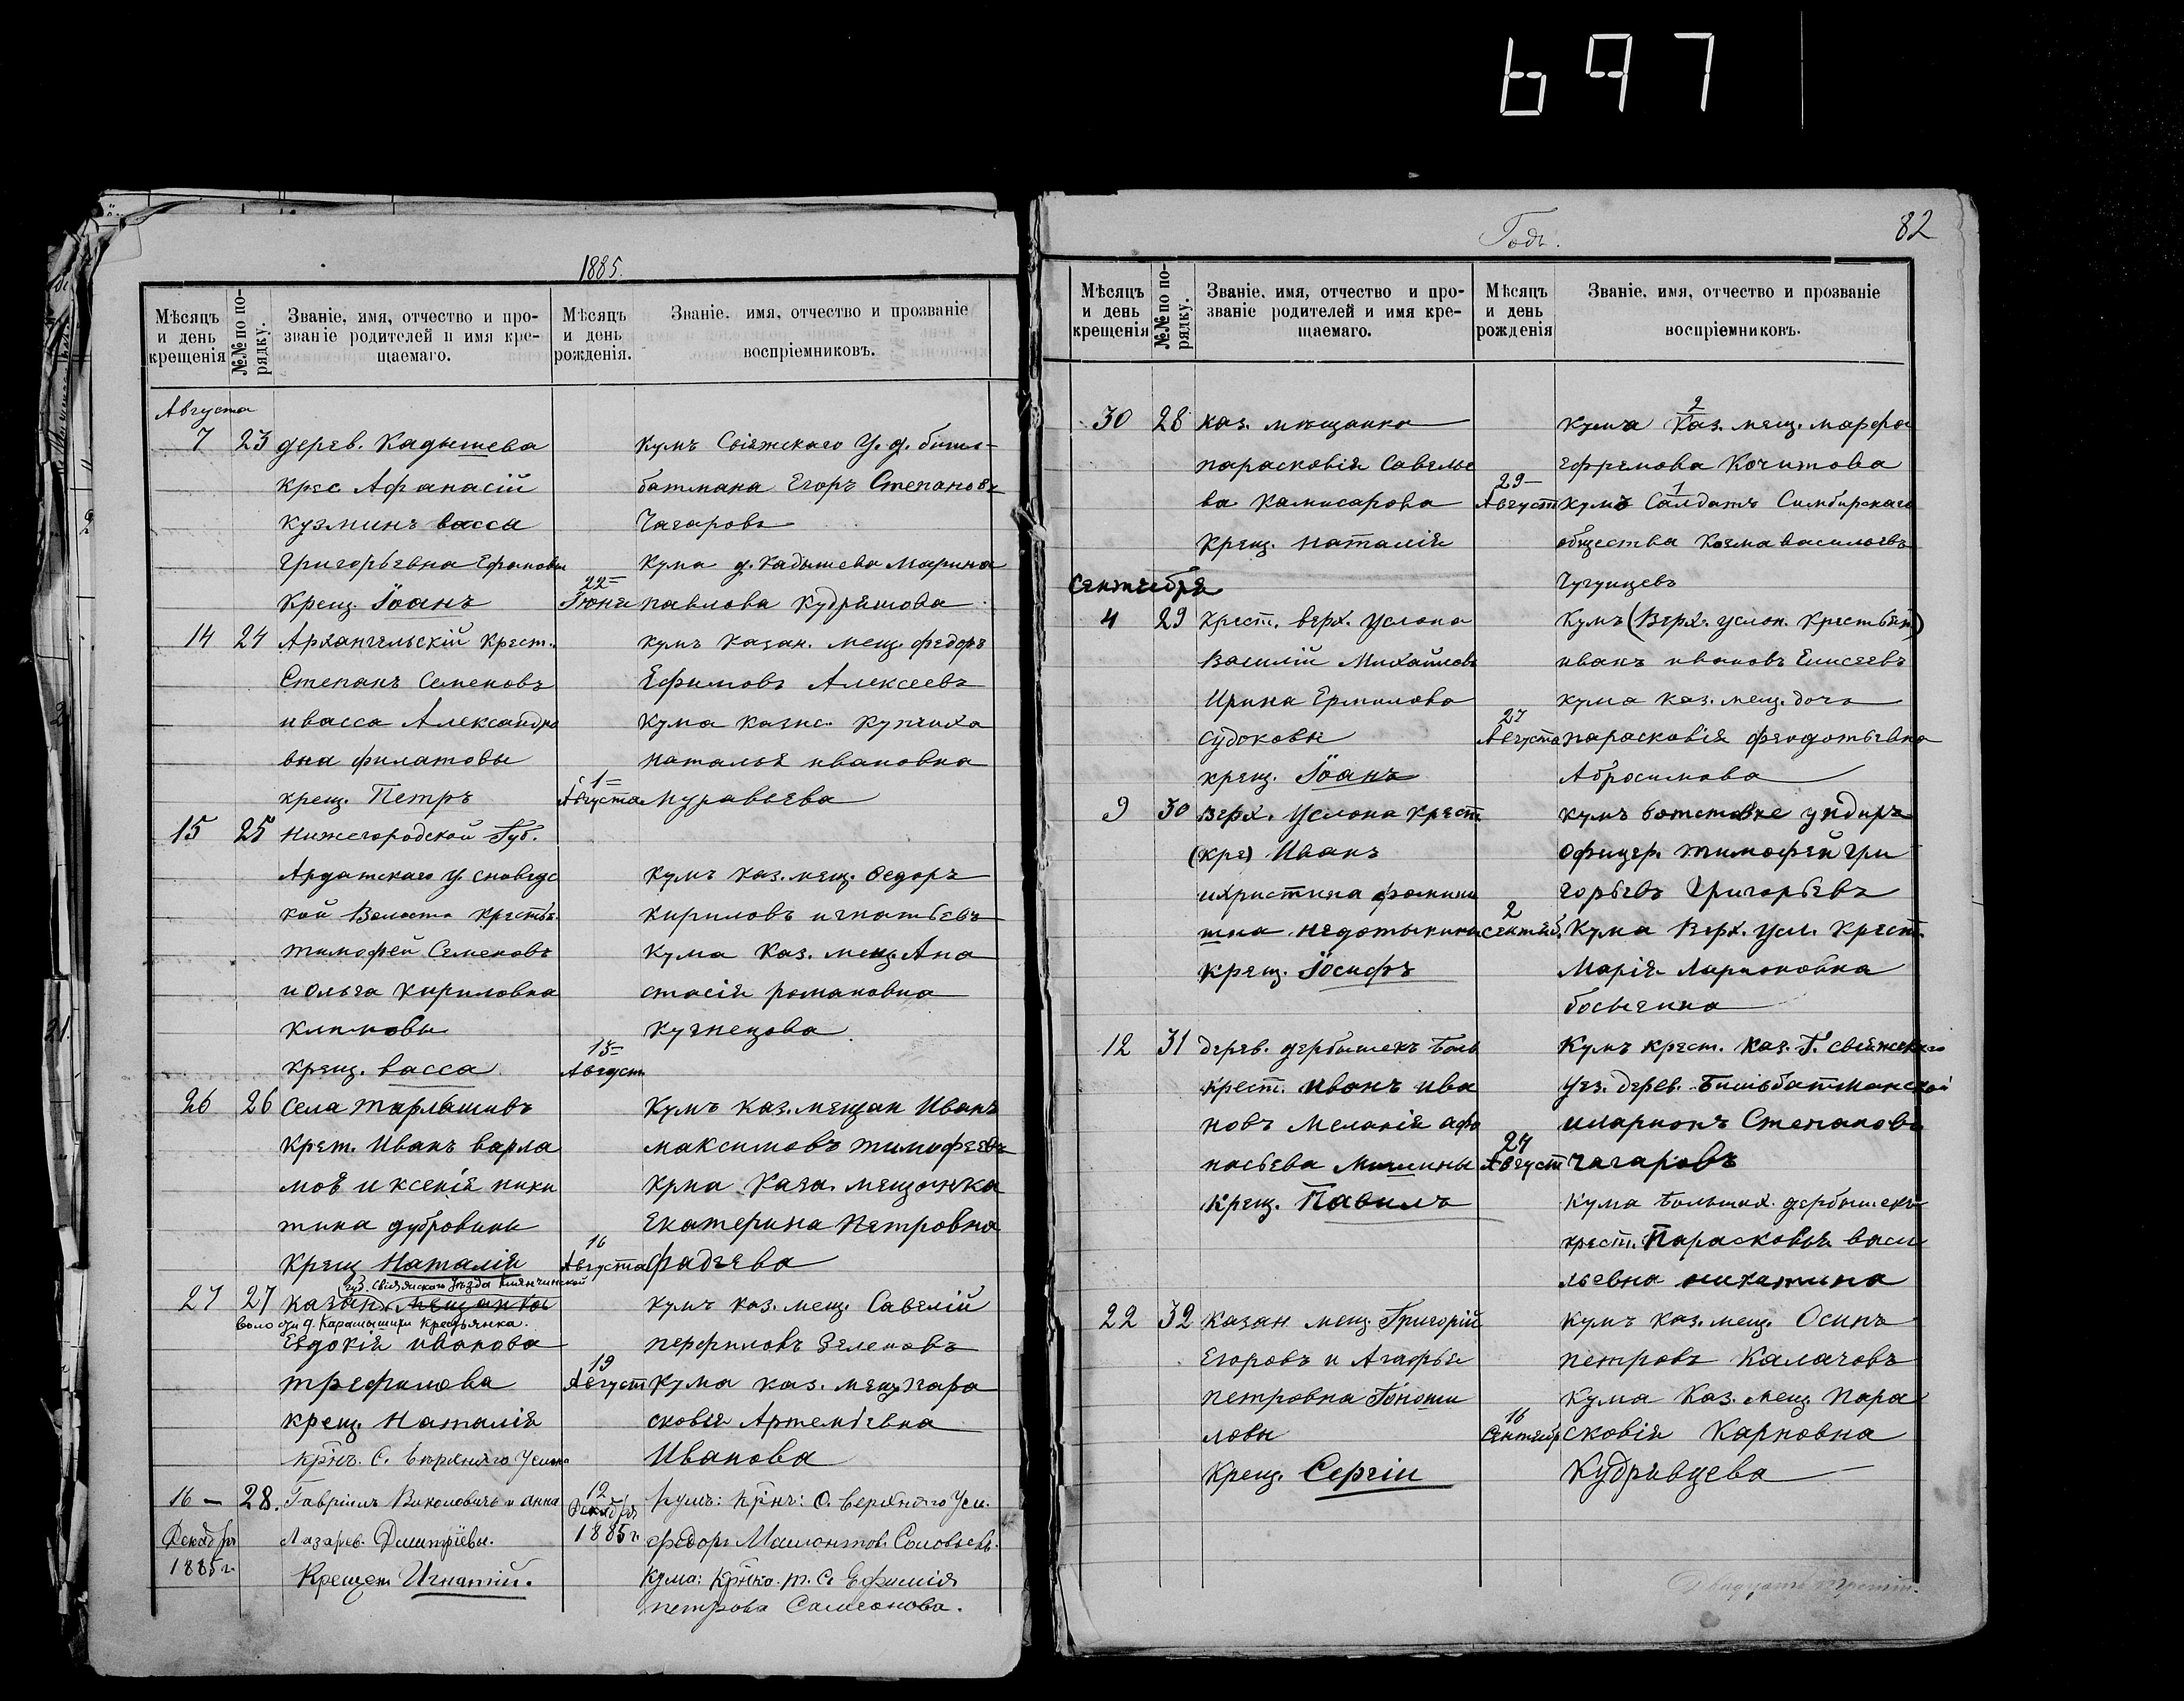 697
1885.
Мѣсяцъ и день крещенія
№№ по порядку.
Званіе, имя, отчество и прозваніе родителей и имя крещаемаго.
Мѣсяцъ и день рожденія.
Званіе, имя, отчество и прозваніе воспріемниковъ.
Августа
7 23 дерев. Кадышева
Крес Афанасій
Кузминъ васса
Григорьевна Ефимовы
Крещ. Іоанъ
22 Іюня
кумъ Свіяжскаго У. д. бишбатмана Егоръ Степановъ
Чагаровъ
Кума д. Кадышева Марина
павлова Кудряшова
14 24 Архангельскій Крест.
Степанъ Семеновъ
и васса Александро
вна филатовы
крещ. Петръ
1 Августа
кумъ Казан. мещ. федоръ
Ефимовъ Алексеевъ
Кума казнс. Купчиха
наталья ивановна
муравьева
15 25 Нижегородской Губ.
Ардатскаго у.
кой Волости крестья.
тимофей Семеновъ
и Ольга Кириловна
Климовы
крещ. васса
15 Август
кумъ каз. мещ. Ѳедоръ
кириловъ игнатьевъ
Кума Каз. мещ. Ана
стасія романовна
кузнецова
26 26 Села
Крет. Иванъ варла
мов и ксенія ники
тина дубровины
Крещ Наталія
16 Августа
Кумъ каз. мещан Иванъ
максимовъ тимофеевъ
Кума Каза. мещанка
Екатерина Петровна
фадѣева
27 27 Казан. мещанка
Губ. Свіяжскаго Уѣзда
воло сти д. крестьянка.
Евдокія иванова
трефилова
крещ. Наталія
19 Август
кумъ каз. мещ. Савелій
перфиловъ Зеленовъ
Кума каз. мещ пара
сковья Артемьевна
Иванова
16 — 28.
Декабря 1885 г.
Крнъ. С. Верхняго Услона
Гавріилъ и анна
Лазарев. Дмитріевы.
Крещен Игнатій.
12 Декабря 1885 г.
Кумъ: Крнъ: С. Верхняго Усл.
федоръ Мамонтов. Соловьевъ.
Кума: Крнка т. С. Ефимія
петрова Самсонова.
Годъ.
82
Мѣсяцъ и день крещенія
№№ по порядку.
Званіе, имя, отчество и прозваніе родителей и имя крещаемаго.
Мѣсяцъ и день рожденія
Званіе, имя, отчество и прозваніе воспріемниковъ.
30 28 каз. мещанка
парасковія Савелье
ва Камисарова
Крещ. наталія
29 Август
2
Кума Каз. мещ. марфа
ефремова Кочитова
1
Кумъ Салдатъ Симбирскаго
общества Козма васильевъ
Чугунцевъ
Сентебря
4 29 Крест. верх. услона
Василій Михайловъ
Ирина Ермилова
судоковы
крещ. Іоанъ
27 Августа
Кумъ (Верх. услон. Крестьян)
иванъ ивановъ Елисеевъ
кума каз. мещ. дочь
парасковія феодотьевна
Абросимова
9 30 Верх. Услона Крест
(Кре) Иванъ
и христина фомини
шна недотыкины
крещ. Іосифъ
2 сентяб.
кумъ ботставке ундиръ
офицер. тимофей гри
горьевъ Григорьевъ
Кума Верх. усл. Крест.
Марія Ларионовна
босыгина
12 31 дерев. дербышекъ Боль
крест. иванъ ива
новъ меланія афо
насьева Мишины
Крещ. Павилъ
27 Август
Кумъ крест. Каз. Г. свеяжскаго
Уез. дерев. Бишьбатманской
иларионъ Степановъ
Чагаровъ
Кума большах. дербышекъ
крест. Парасковья васи
льевна никитина
22 32 Казан мещ. Григорій
Егоровъ и Агафья
петровна
ловы
Крещ. Сергій
16 Сентябр
Кумъ каз. мещ. Осипъ
петровъ Калачовъ
Кума Каз. мещ. Пара
сковія Карповна
Кудрявцева
Двадцать третій.